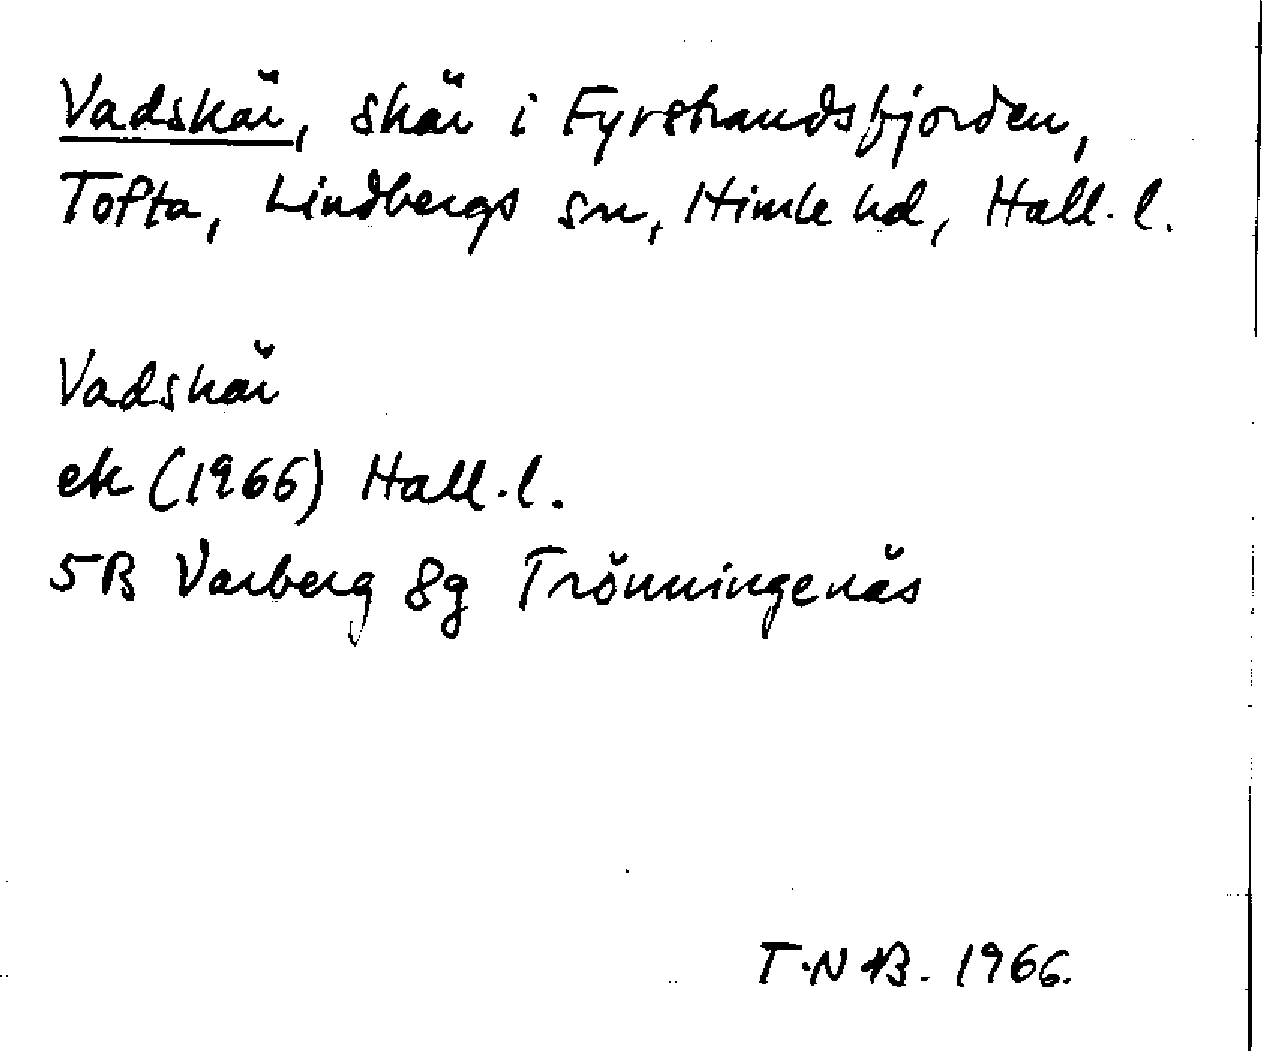 Vadskär, skär i Fyrstrandsfjorden,
Tofta, Lindbergs sn, Himle hd, Hall. l.
Vadskär
ek (1966) Hall. l.
5B Varberg 8g Trönningenäs
T.N-B. 1966.